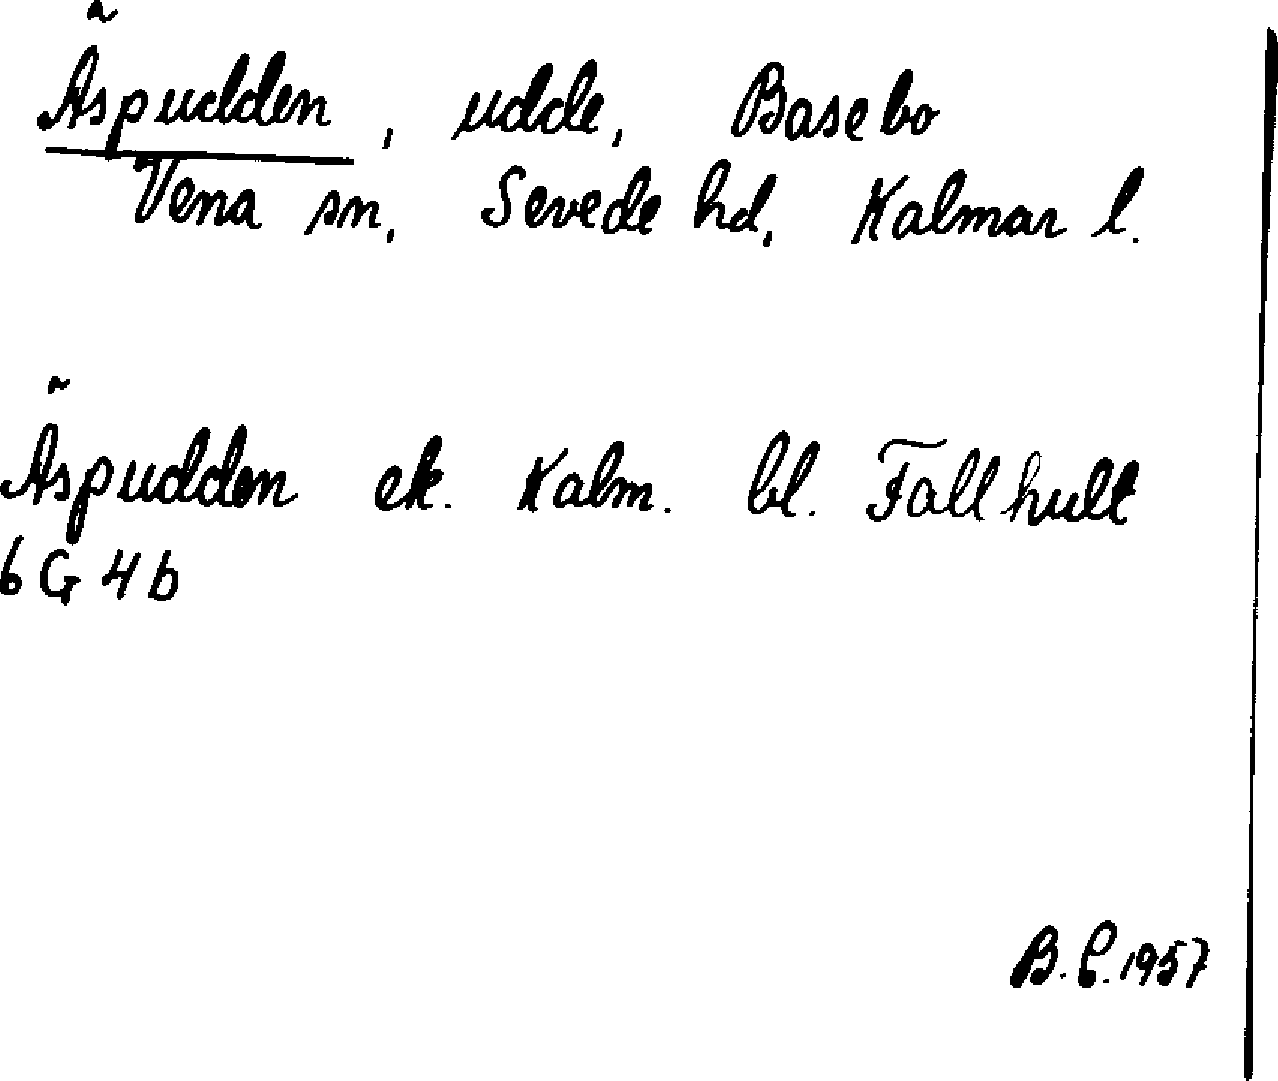 Äspudden, udde, Basebo
Vena sn, Sevede hd, Kalmar l.
Äspudden ek. Kalm. bl. Fallhult
6 G 4 b
B. E. 1957